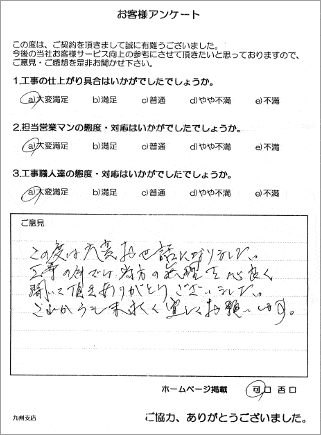 お客様アンケート
この度は、ご契約を頂きまして誠に有難うございました。
今後の当社お客様サービス向上の参考にさせて頂きたいと思っておりますので、
ご意見・ご感想を是非お聞かせ下さい。
1.工事の仕上がり具合はいかがでしたでしょうか。
a)大変満足 b)満足 c)普通 d)やや不満 e)不満
2.担当営業マンの態度・対応はいかがでしたでしょうか。
a)大変満足 b)満足 c)普通 d)やや不満 e)不満
3.工事職人達の態度・対応はいかがでしたでしょうか。
a)大変満足 b)満足 c)普通 d)やや不満 e)不満
ご意見
この度は大変お世話になりました。
工事の件では、当方の無理を心良く
聞いて頂きありがとうございました。
これからも末永く宜しくお願いします。
ホームページ掲載 可 口 否 口
九州支店
ご協力、ありがとうございました。